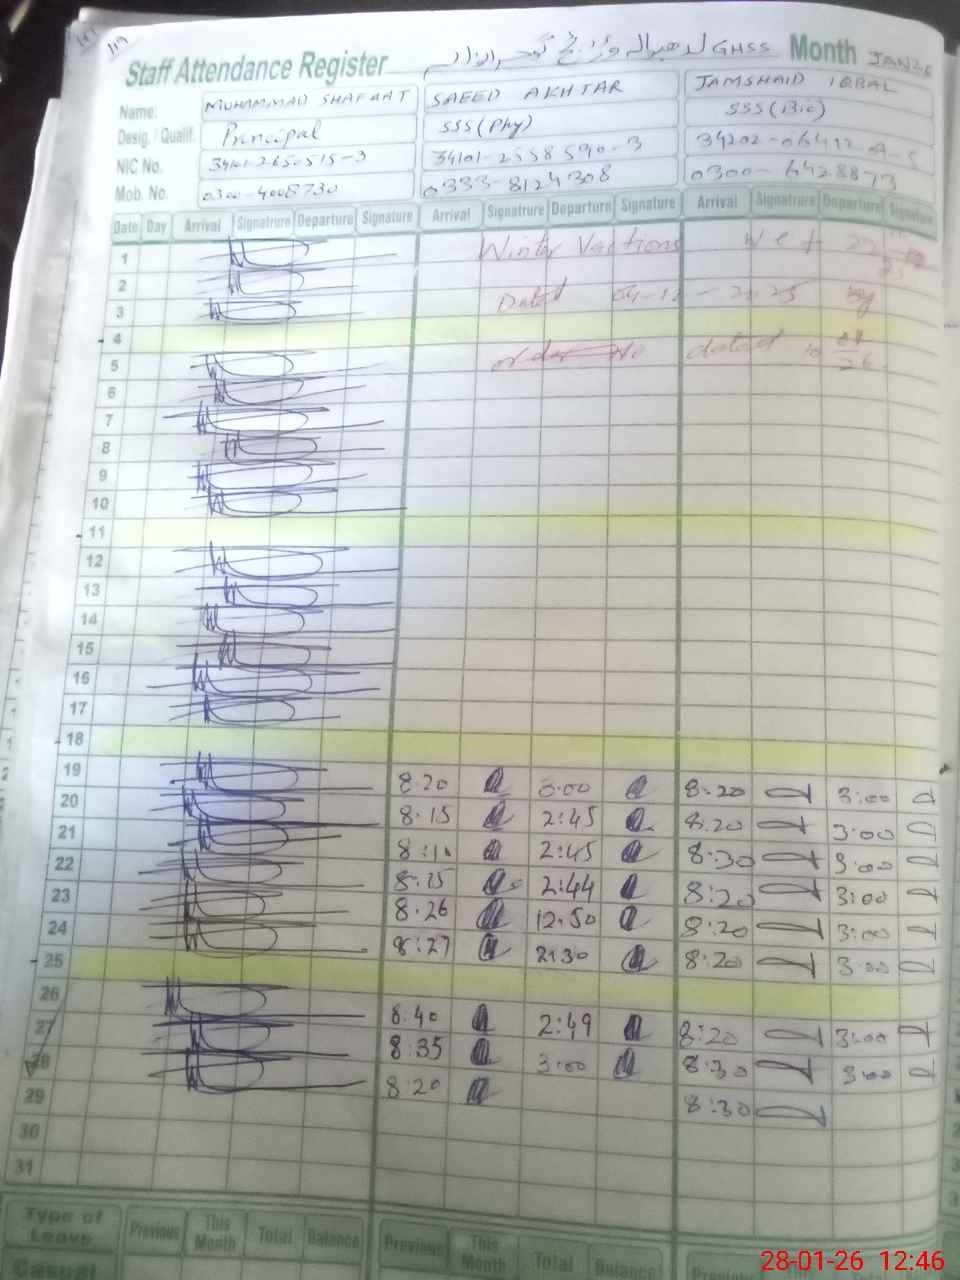 119
Staff Attendance Register GHSS Month JAN26
Name: MUHAMMAD SHAFAAT SAEED AKHTAR JAMSHAID IQBAL
Desig. / Qualif. Principal SSS (Phy) SSS (Bio)
NIC No. 34101-2650515-3 34101-2558590-3
Mob. No. 0300-4008730 0333-8124308 0300-6428873
Date Day Arrival Signatrure Departure Signature Arrival Signatrure Departure Signature Arrival Signatrure Departure Signature
1 Winter Vactions w e f
2
3 Dated by
4
5 order No dated
6
7
8
9
10
11
12
13
14
15
16
17
18
19 8.20 3.00 8.20 3:00
20 8.15 2:45 8.20 3:00
21 2:45 8:30 3:00
22 2:44 8:20 3:00
23 8.26 12.50 8:20 3:00
24 8:27 2:30 8:20 3:00
25
26 8.40 2:49 8:20 3:00
27 8:35 3:00 8:30 3:00
28 8:20 8:30
29
30
31
Type of Leave Previous This Month Total Balance Previous This Month Total Balance Previous
Casual
28-01-26 12:46